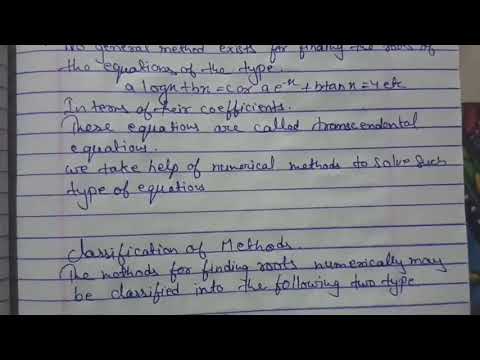 No general method exists for finding the roots of
the equations of the type.
a logx+bx=c or a e^-x + b tan x = 4 etc
In terms of their coefficients.
These equations are called transcendental
equations.
we take help of numerical methods to solve such
type of equations
Classification of Methods.
The methods for finding roots numerically may
be classified into the following two type